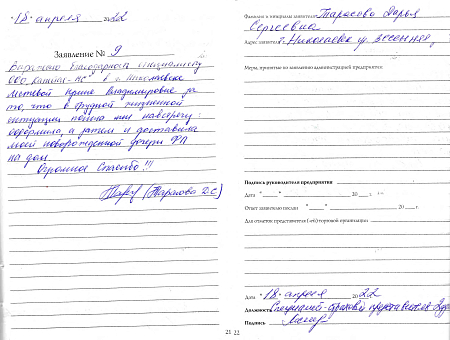 "18" апреля 2022
Заявление № 9
Выражаю благодарность специалисту
ООО "Капитал-МС" в г. Николаевске
Метевой Ирине Владимировне за
то, что в трудной жизненной
ситуации пошла мне навстречу:
оформила, а затем и доставила
моей новорожденной дочери
на дом.
Огромное спасибо!!!
(Тарасова Д.С)
21
Фамилия и инициалы заявителя Тарасова Дарья
Сергеевна
Адрес заявителя г. Николаевск ул.
Меры, принятые по заявлению администрацией предприятия:
Подпись руководителя предприятия
Дата "___" 20 г.
Ответ заявителю послан "___" 20 г.
Для отметок представителя (-ей) торговой организации
Дата "18" апреля 2022
Должность Специалист-страховой представитель
Подпись
22